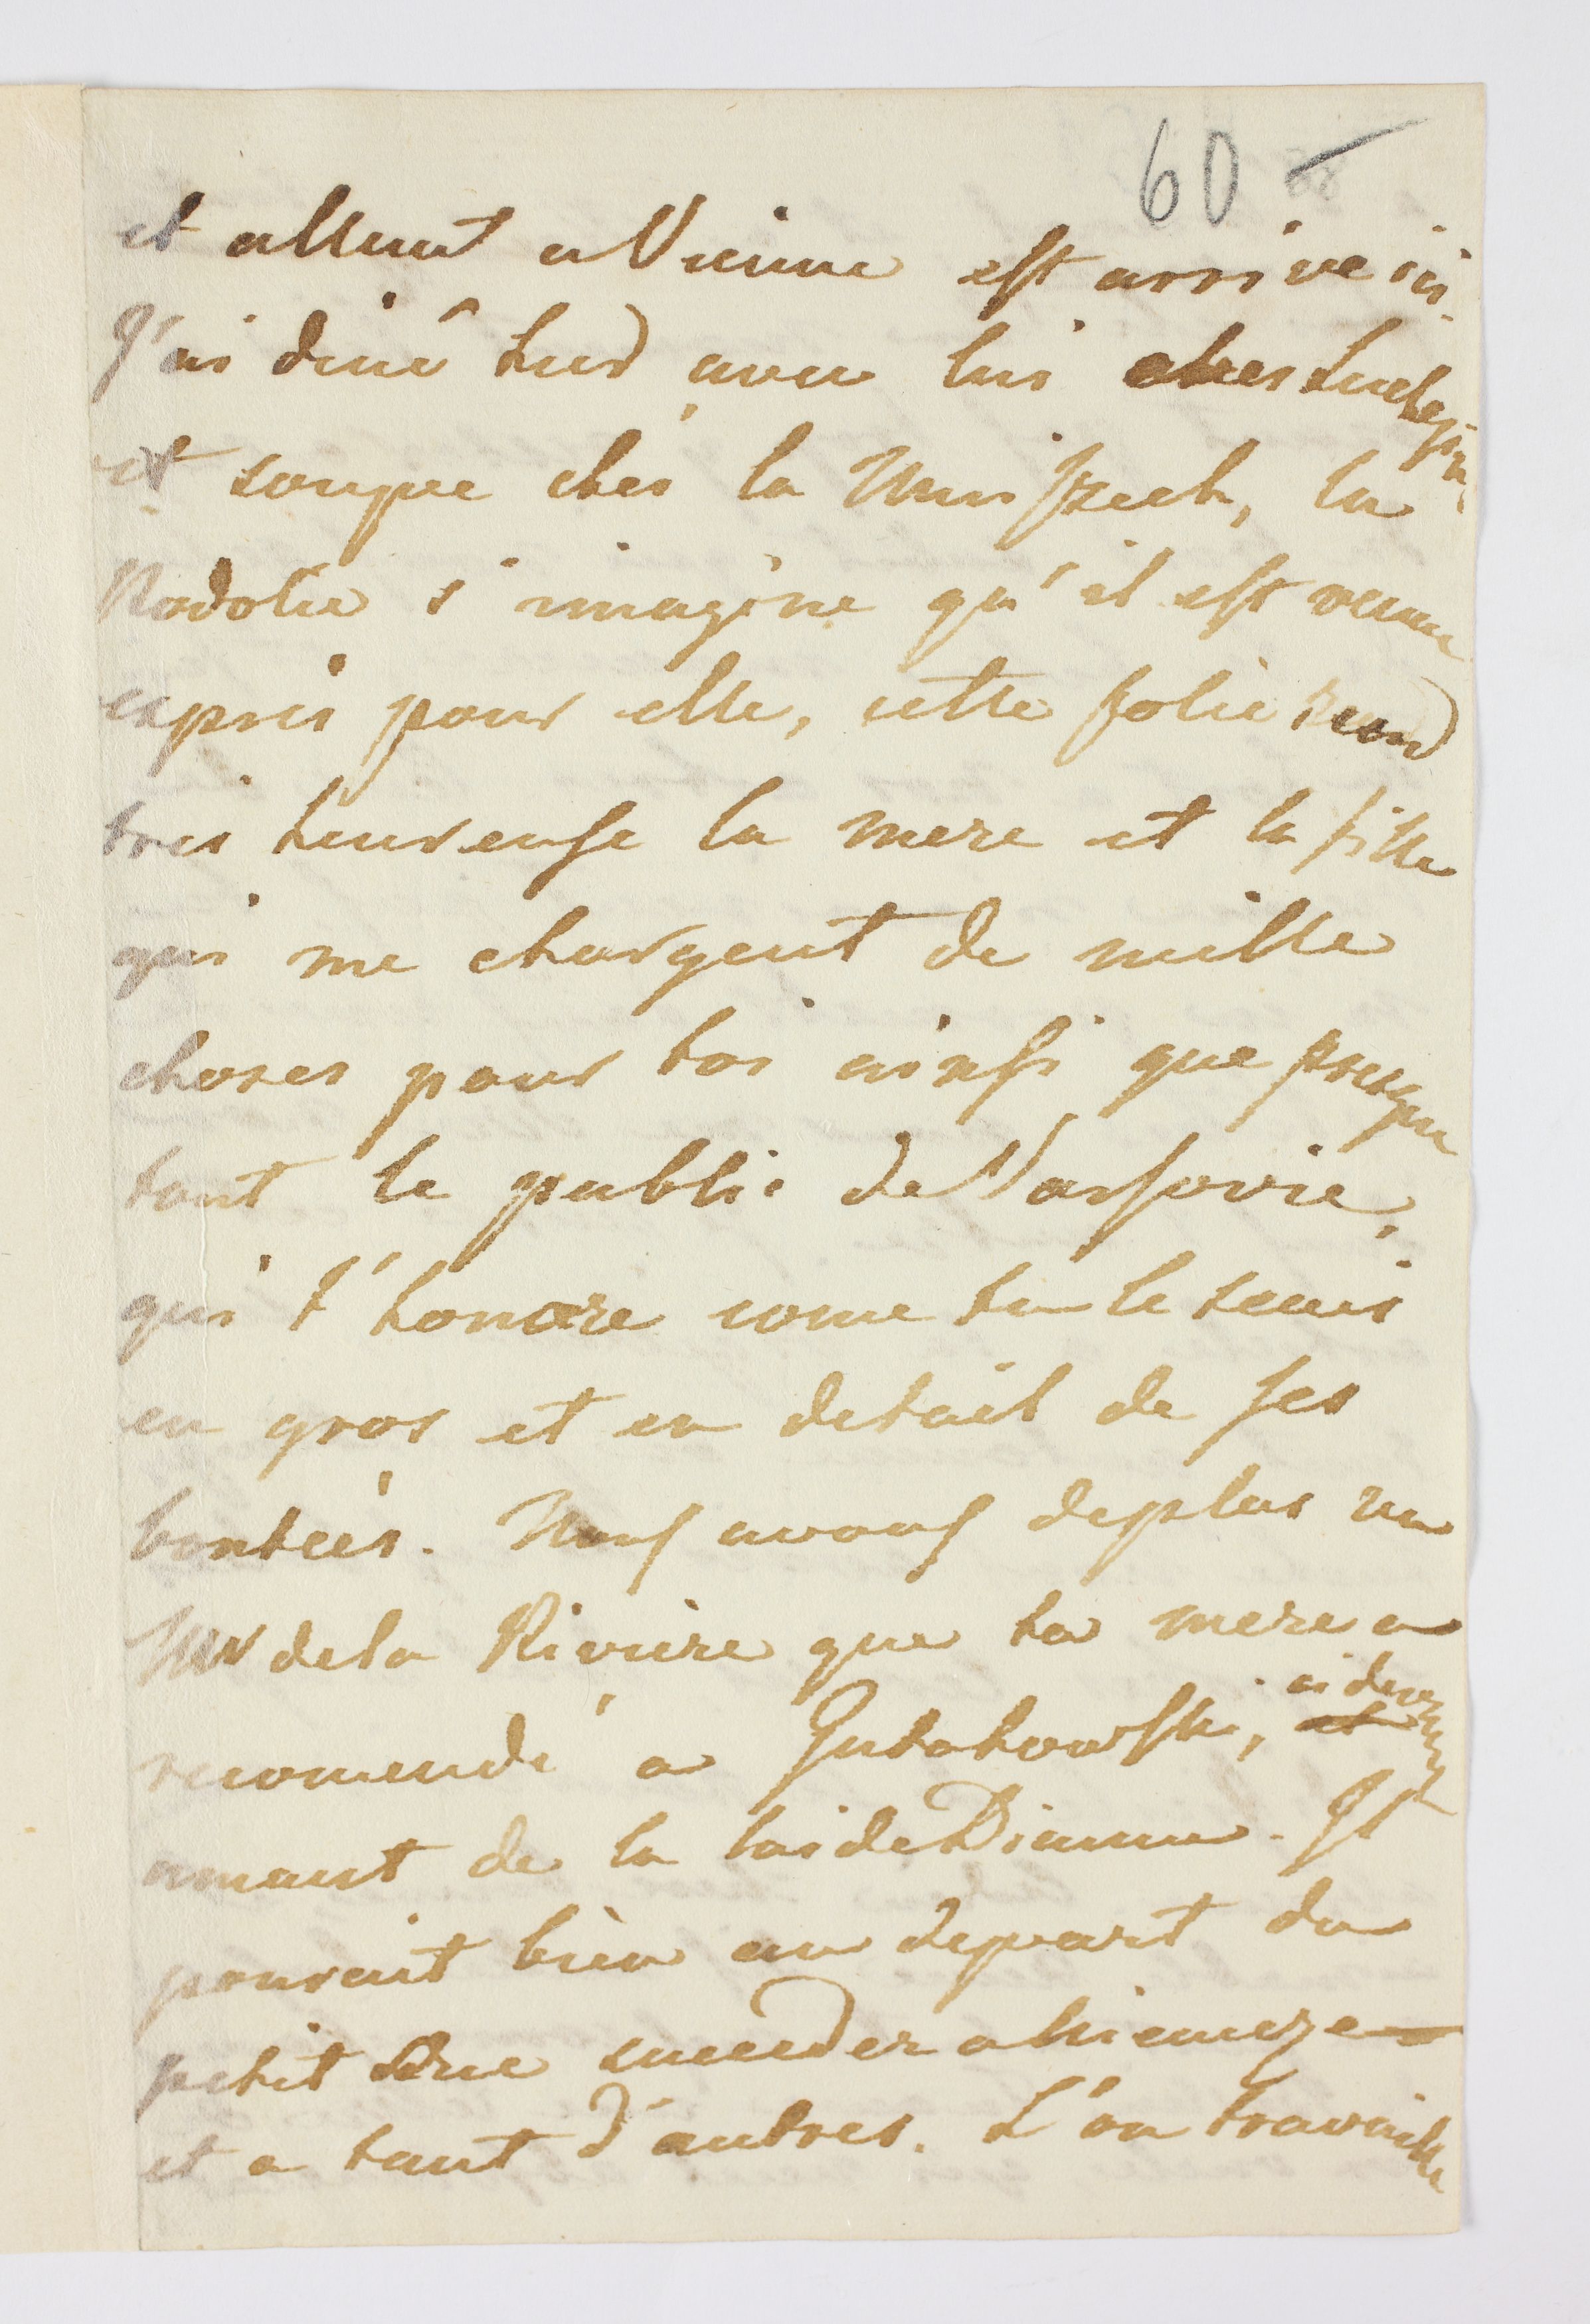 60
et allant a Vienne est arrive ici.
J'ai dinê hier avec lui ches
et soupe ches la Mniszech, la
Podolie s'imagine qu'il est venu
expres pour elle, cette folie rend
tres heureuse la mere et la fille
qui me chargent de mille
choses pour toi ainsi que presque
tout le public de Varsovie,
qui t'honore come tu le scais
en gros et en detail de ses
bontées. Nous avons deplus un
Mr dela Riviere que ta mere a
recomendé a Gutakowski, ci devant
amant de la laide Dianne. Il
pourait bien au depart du
petit succeder a
et a tant d'autres. L'on travaille